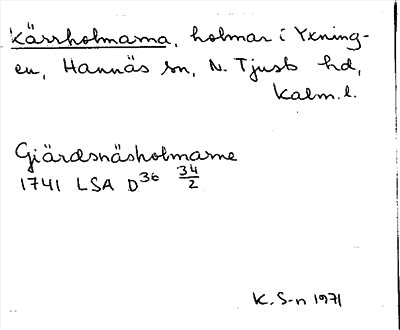 Kärrholmarna, holmar i Yxning-
en, Hannäs sn, N. Tjusts hd,
Kalm. l.
Giärdesnäsholmarne
1741 LSA D36 34/2
K. S-n 1971